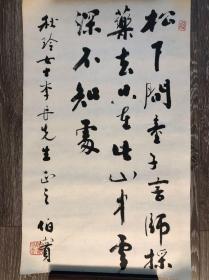 松下問童子言師採
藥去只在此山中雲
深不知處
玲女士李丹先生正之
伯